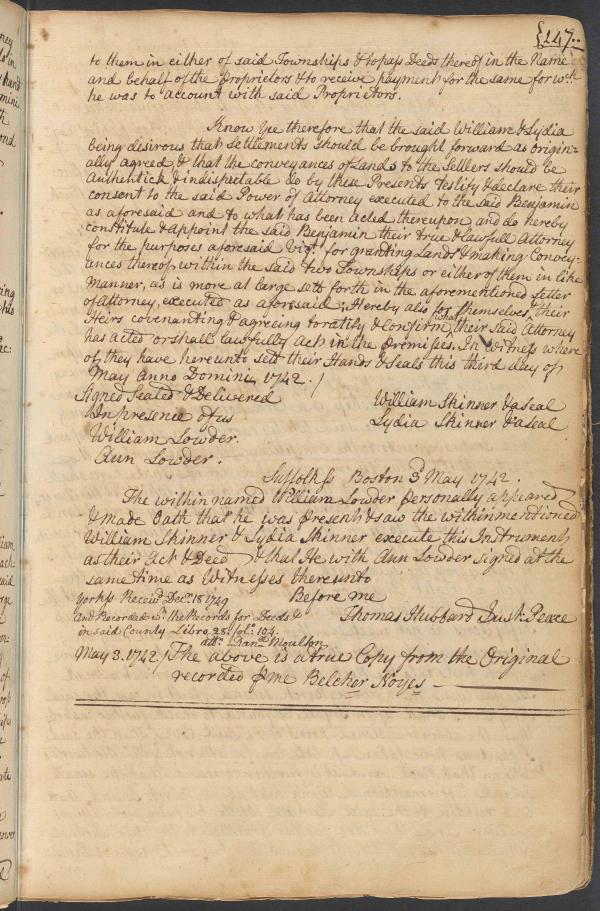 {147..
to them in either of said Townships & to pass Deeds thereof in the Name
and behalf of the Proprietors & to receive payment for the same for wch
he was to account with said Proprietors.
Know Ye therefore that the said William & Lydia
being desirous that Settlements should be brought forward as origin=
ally agreed & that the conveyances of Lands to the Settlers should be
Authentick & indisputable do by these Presents testify & declare their
consent to the said Power of Attorney executed to the said Benjamin
as aforesaid and to what has been acted thereupon and do hereby
constitute & appoint the said Benjamin their true & lawfull Attorney
for the purposes aforesaid Vizt. for granting Lands & making Convey=
ances thereof within the said two Townships or either of them in like
Manner, as is more at large sett forth in the aforementioned Letter
of Attorney, executed as aforesaid; Hereby also for themselves, their
Heirs covenanting & agreeing to ratify & confirm what their said Attorney
has acted or shall lawfully Act in the Premisses. In Witness where
of they have hereunto sett their Hands & Seals this third day of
May Anno Domini, 1742./
Signed Sealed & Delivered
William Skinner & a Seal
In presence of us
Lydia Skinner & a Seal
William Lowder.
Ann Lowder.
Suffolk ss Boston 3d May 1742.
The within named William Lowder personally appeared
& made Oath that he was present & saw the within mentioned
William Skinner & Lydia Skinner execute this Instrument
as their Act & Deed & that He with Ann Lowder signed at the
same time as Witnesses thereunto
York ss Receivd Decr. 18 1749
Before me
And Recorded wth. the Records for Deeds &c
Thomas Hubbard Just: Peace
in said County Libro 28: folo: 104.
attr. Danel Moulton
May 3. 1742/ The above is a true Copy from the Original
recorded p me Belcher Noyes